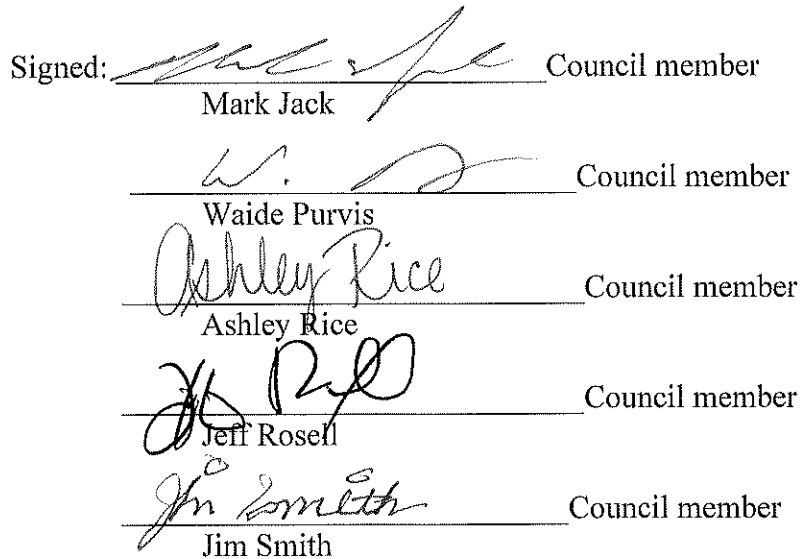 Signed: Council member
Mark Jack
W. Council member
Waide Purvis
Ashley Rice Council member
Ashley Rice
Council member
Jeff Rosell
Jim Smith Council member
Jim Smith